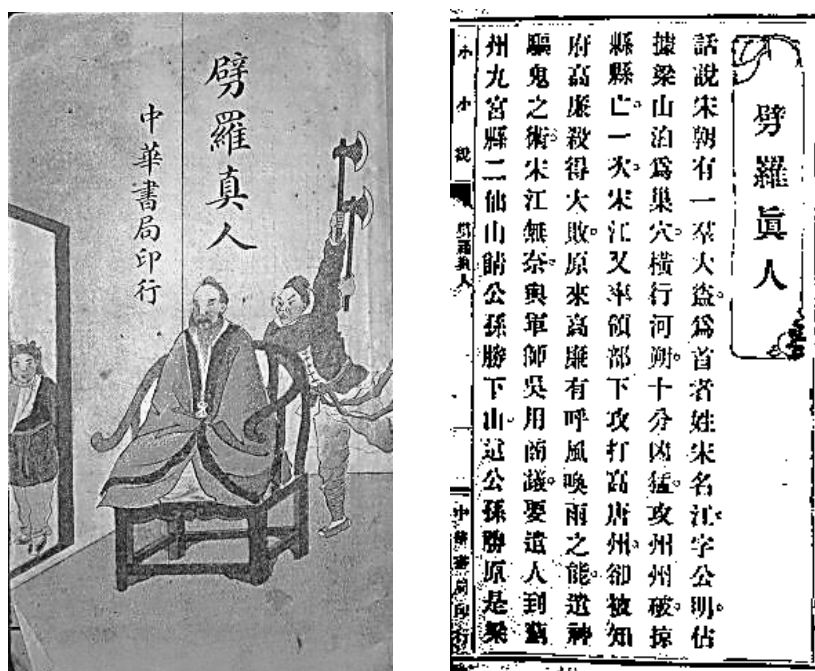 劈羅真人
中華書局印行
劈羅眞人
話說宋朝有一羣大盜。爲首者姓宋名江。字公明。佔
據梁山泊爲巢穴。橫行河朔。十分凶猛。攻州州破。掠
縣縣亡。一次宋江又率領部下攻打高唐州。卻被知
府高廉殺得大敗。原來高廉有呼風喚雨之能。遣神
驅鬼之術。宋江無奈。與軍師吳用商議。要遣人到薊
州九宮縣二仙山請公孫勝下山。這公孫勝原是梁
小小說
劈羅眞人
中華書局印行